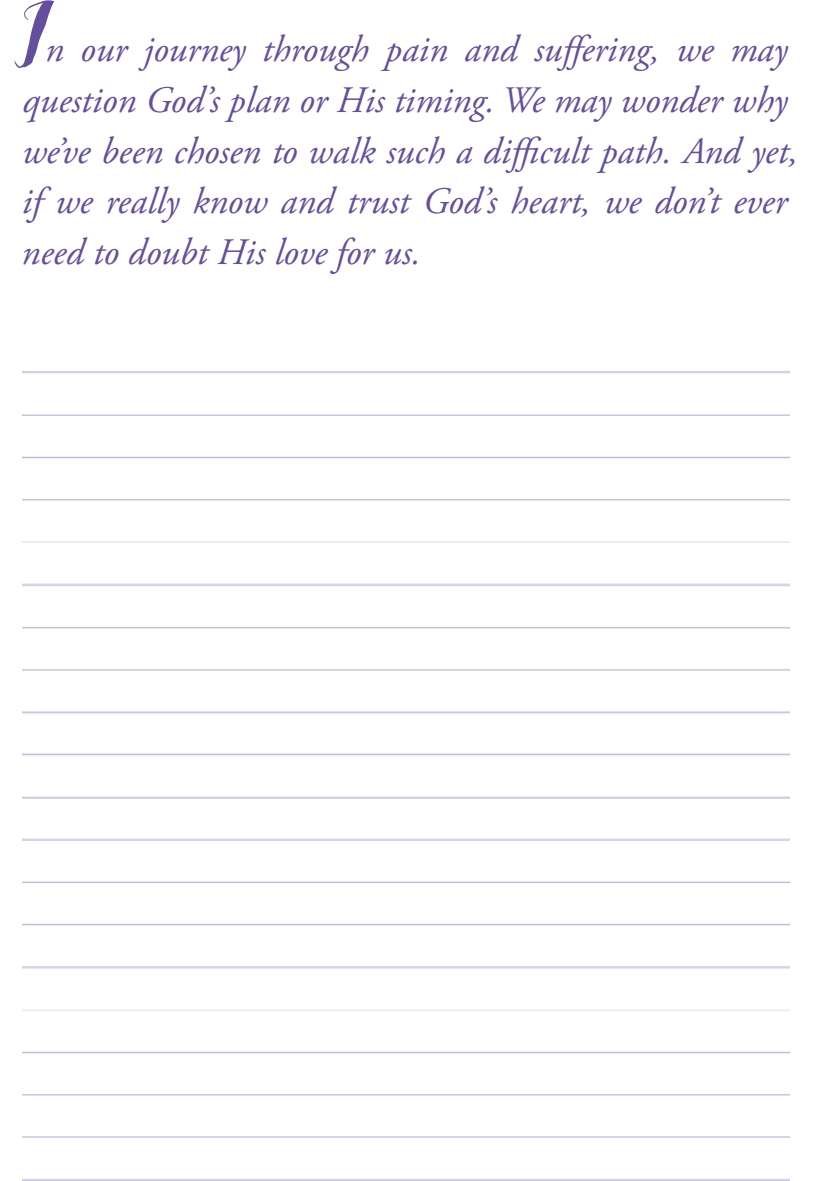 In our journey through pain and suffering, we may
question God’s plan or His timing. We may wonder why
we’ve been chosen to walk such a difficult path. And yet,
if we really know and trust God’s heart, we don’t ever
need to doubt His love for us.